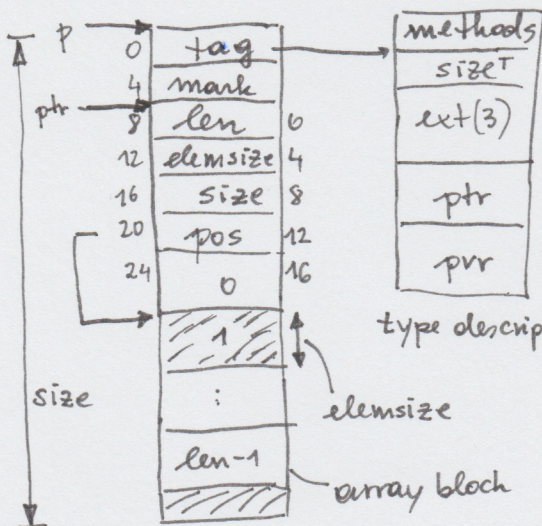 p
0 tag
4 mark
ptr
8 len 0
12 elemsize 4
16 size 8
20 pos 12
24 0 16
1
:
len-1
size
elemsize
array block
methods
size T
ext(3)
ptr
pvr
type descrip